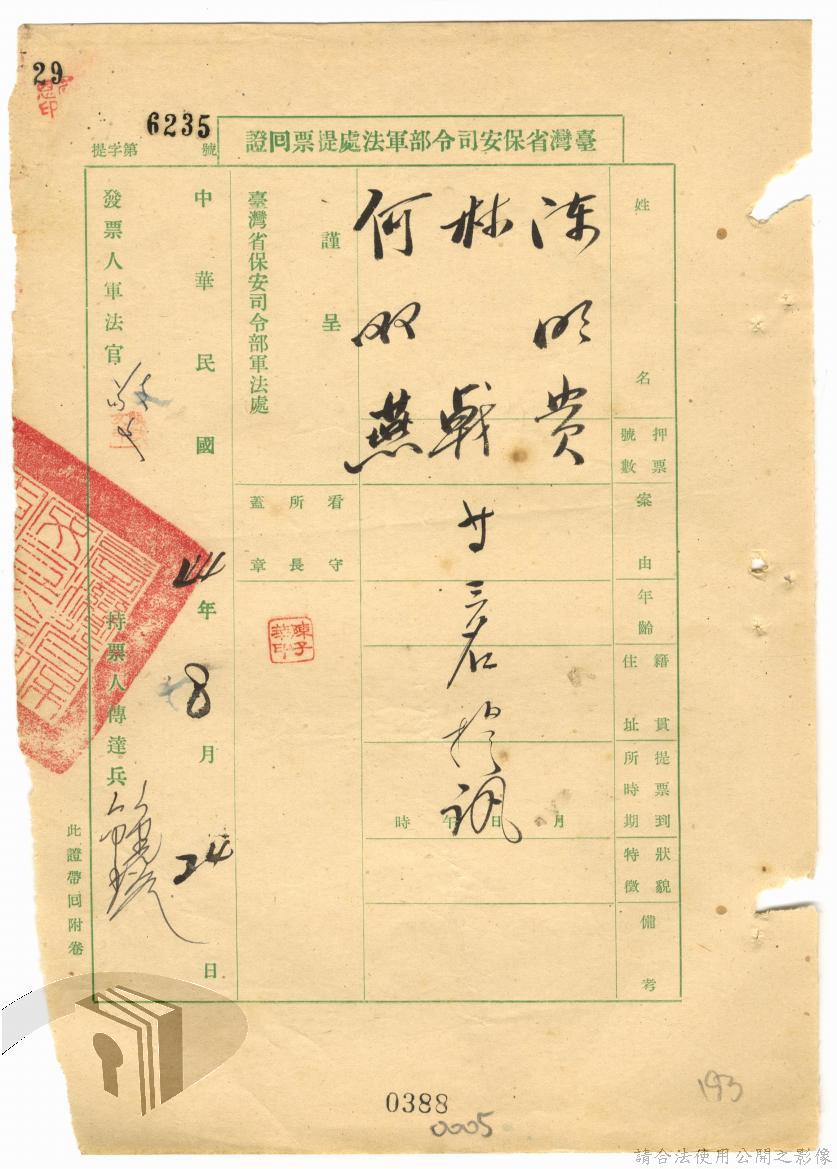 29
臺灣省保安司令部軍法處提票回證
提字第6235號
姓名
押票號數
案由
年齡
籍貫住址
提票到所時期
狀貌特徵
備考
陳明貴
林戟
何双燕
廿三名於訊
月日午時
謹呈
臺灣省保安司令部軍法處
看守所長蓋章
陳子華印
中華民國44年8月24日
發票人軍法官
持票人傳達兵
此證帶回附卷
0388
0005
193
請合法使用公開之影像